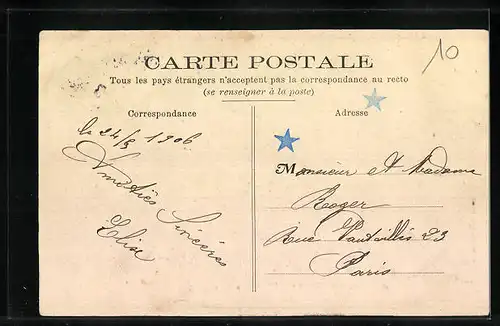 10
CARTE POSTALE
Tous les pays étrangers n'acceptent pas la correspondance au recto
(se renseigner à la poste)
Correspondance
Adresse
le 24/8 1906
Amitiés Sincères
Elise
Monsieur et Madame
Roger
Rue 23
Paris